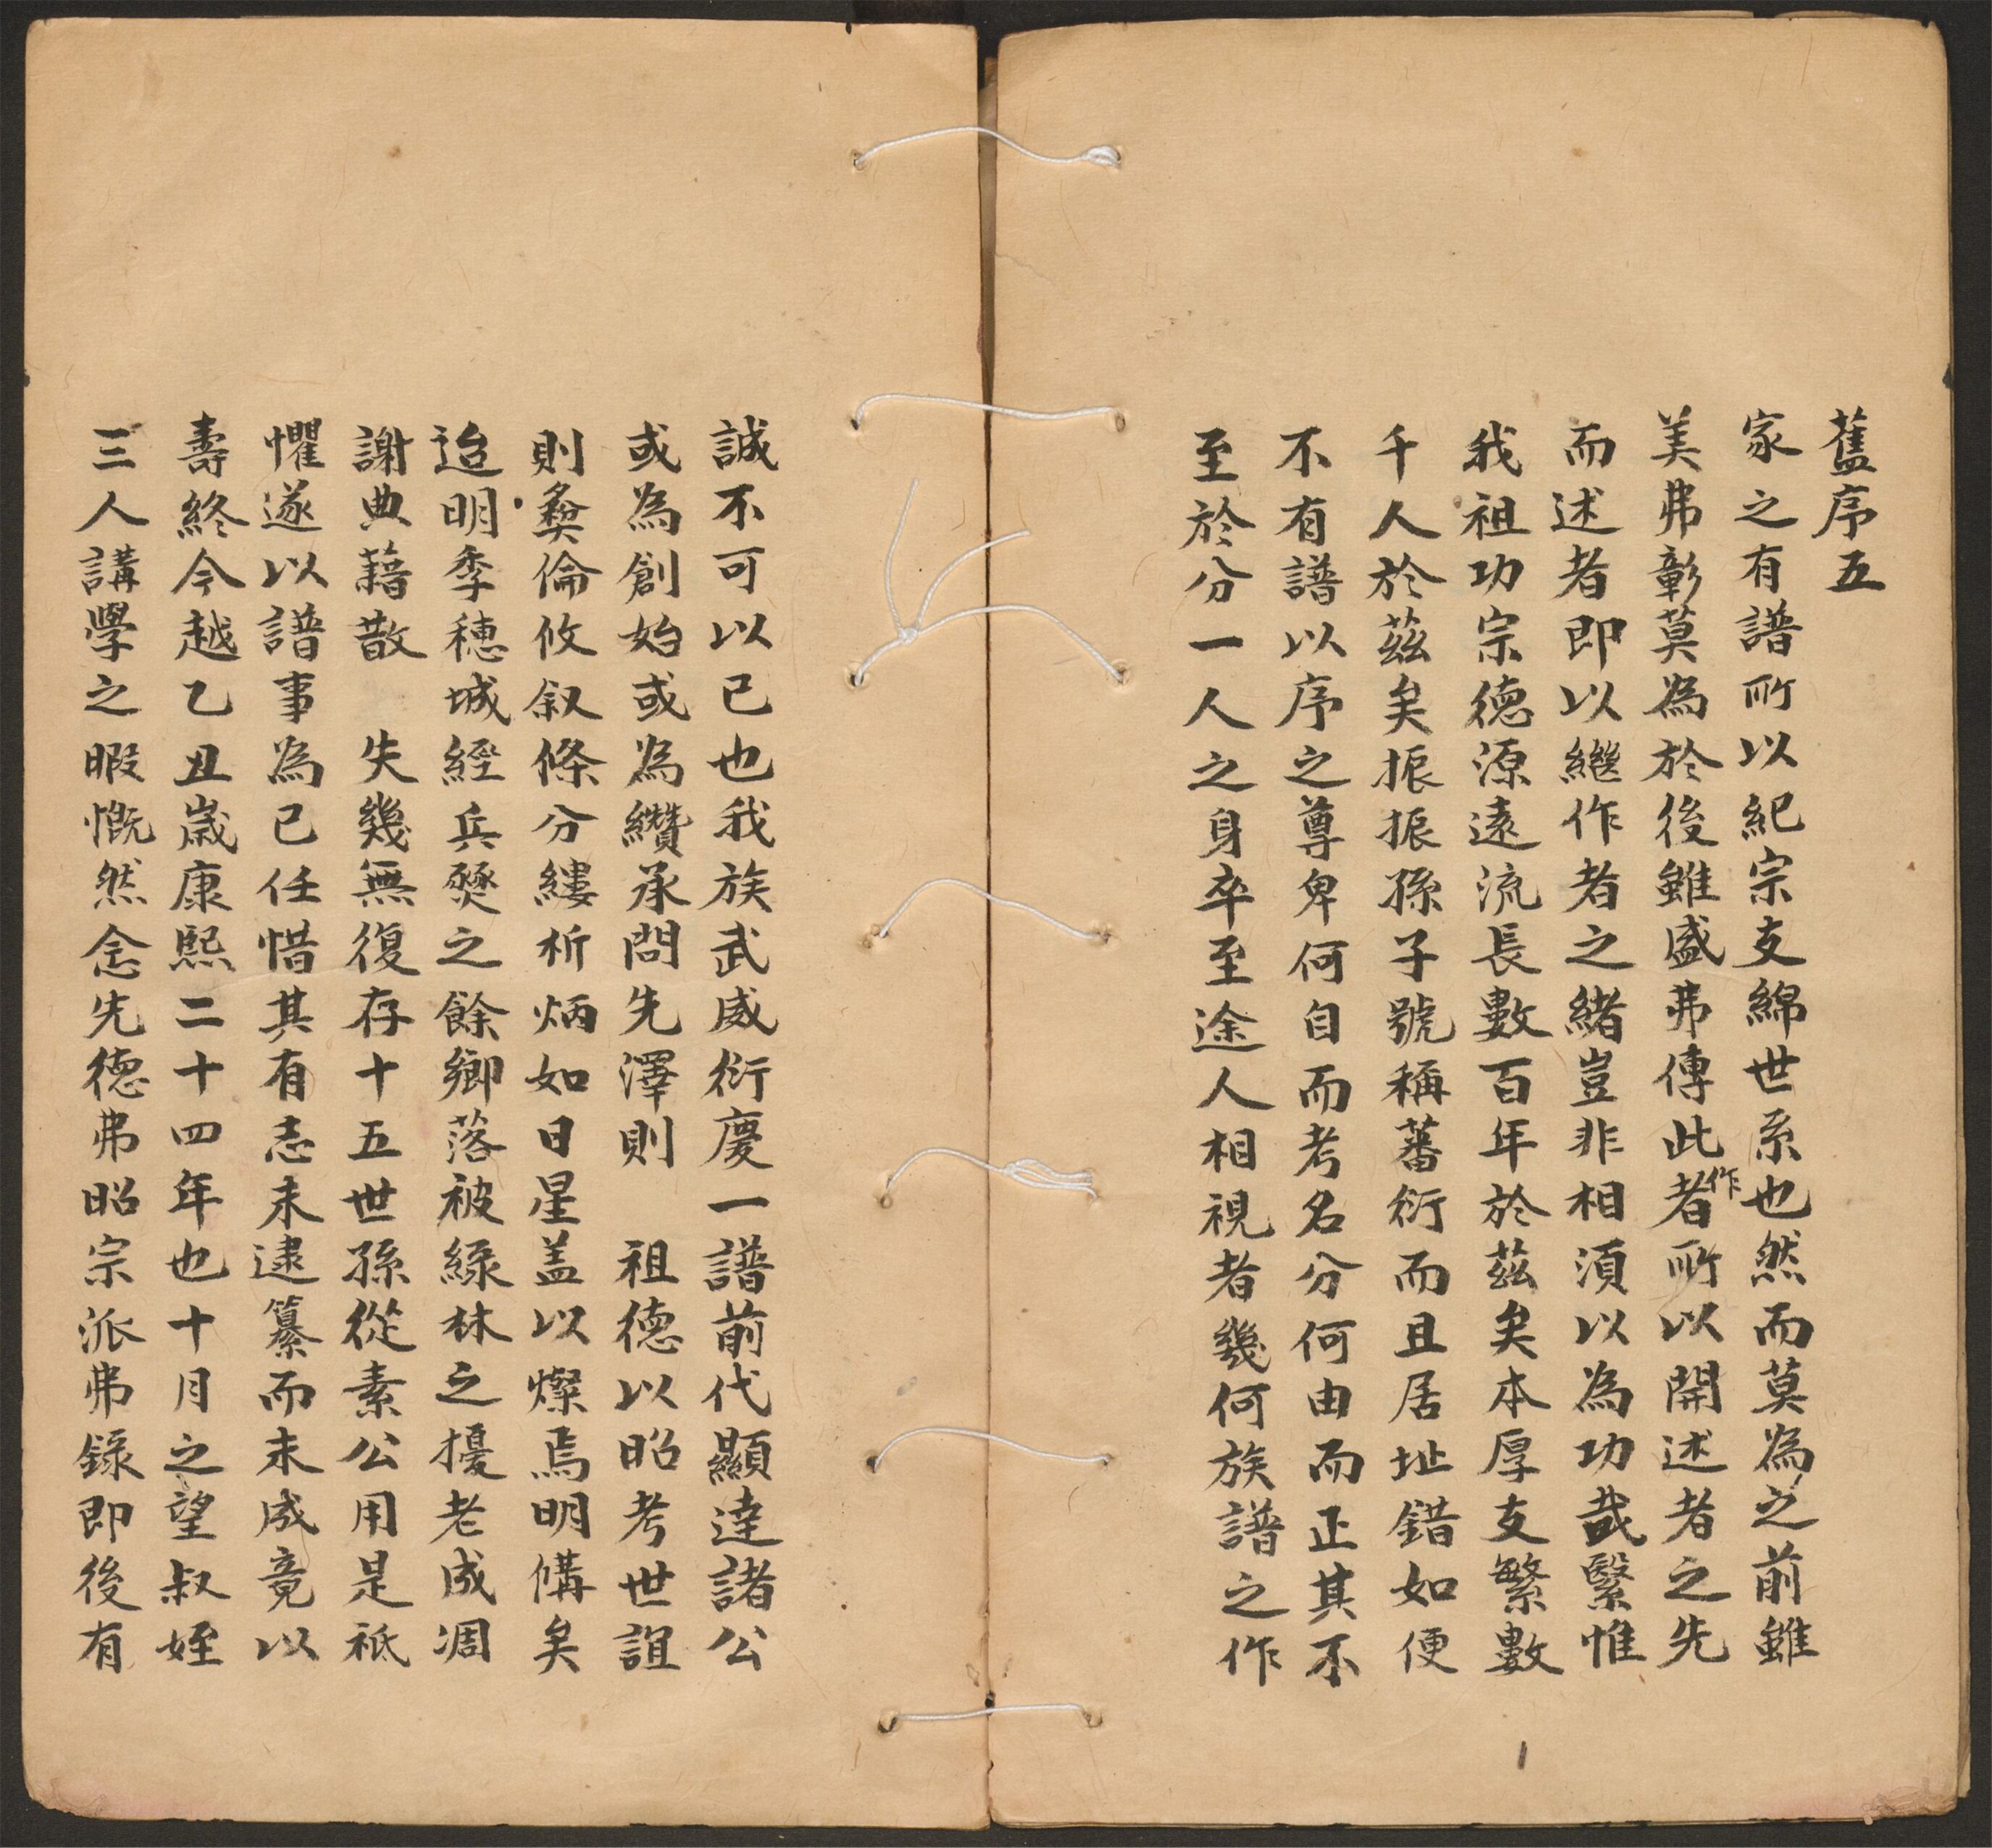 舊序五
家之有譜所以紀宗支綿世系也然而莫為之前雖
美弗彰莫為於後雖盛弗傳此作者所以開述者之先
而述者即以繼作者之緒豈非相須以為功哉繄惟
我祖功宗德源遠流長數百年於茲矣本厚支繁數
千人於茲矣振振孫子號稱蕃衍而且居址錯如便
不有譜以序之尊卑何自而考名分何由而正其不
至於分一人之身卒至途人相視者幾何族譜之作
誠不可以已也我族武威衍慶一譜前代顯達諸公
或為創始或為纘承問先澤則　祖德以昭考世誼
則彜倫攸叙條分縷析炳如日星盖以燦焉明備矣
迨明季穗城經兵燹之餘鄉落被綠林之擾老成凋
謝典藉散　失幾無復存十五世孫從素公用是祇
懼遂以譜事為己任惜其有志未逮纂而未成竟以
壽終今越乙丑歲康熙二十四年也十月之望叔姪
三人講學之暇慨然念先德弗昭宗派弗錄即後有